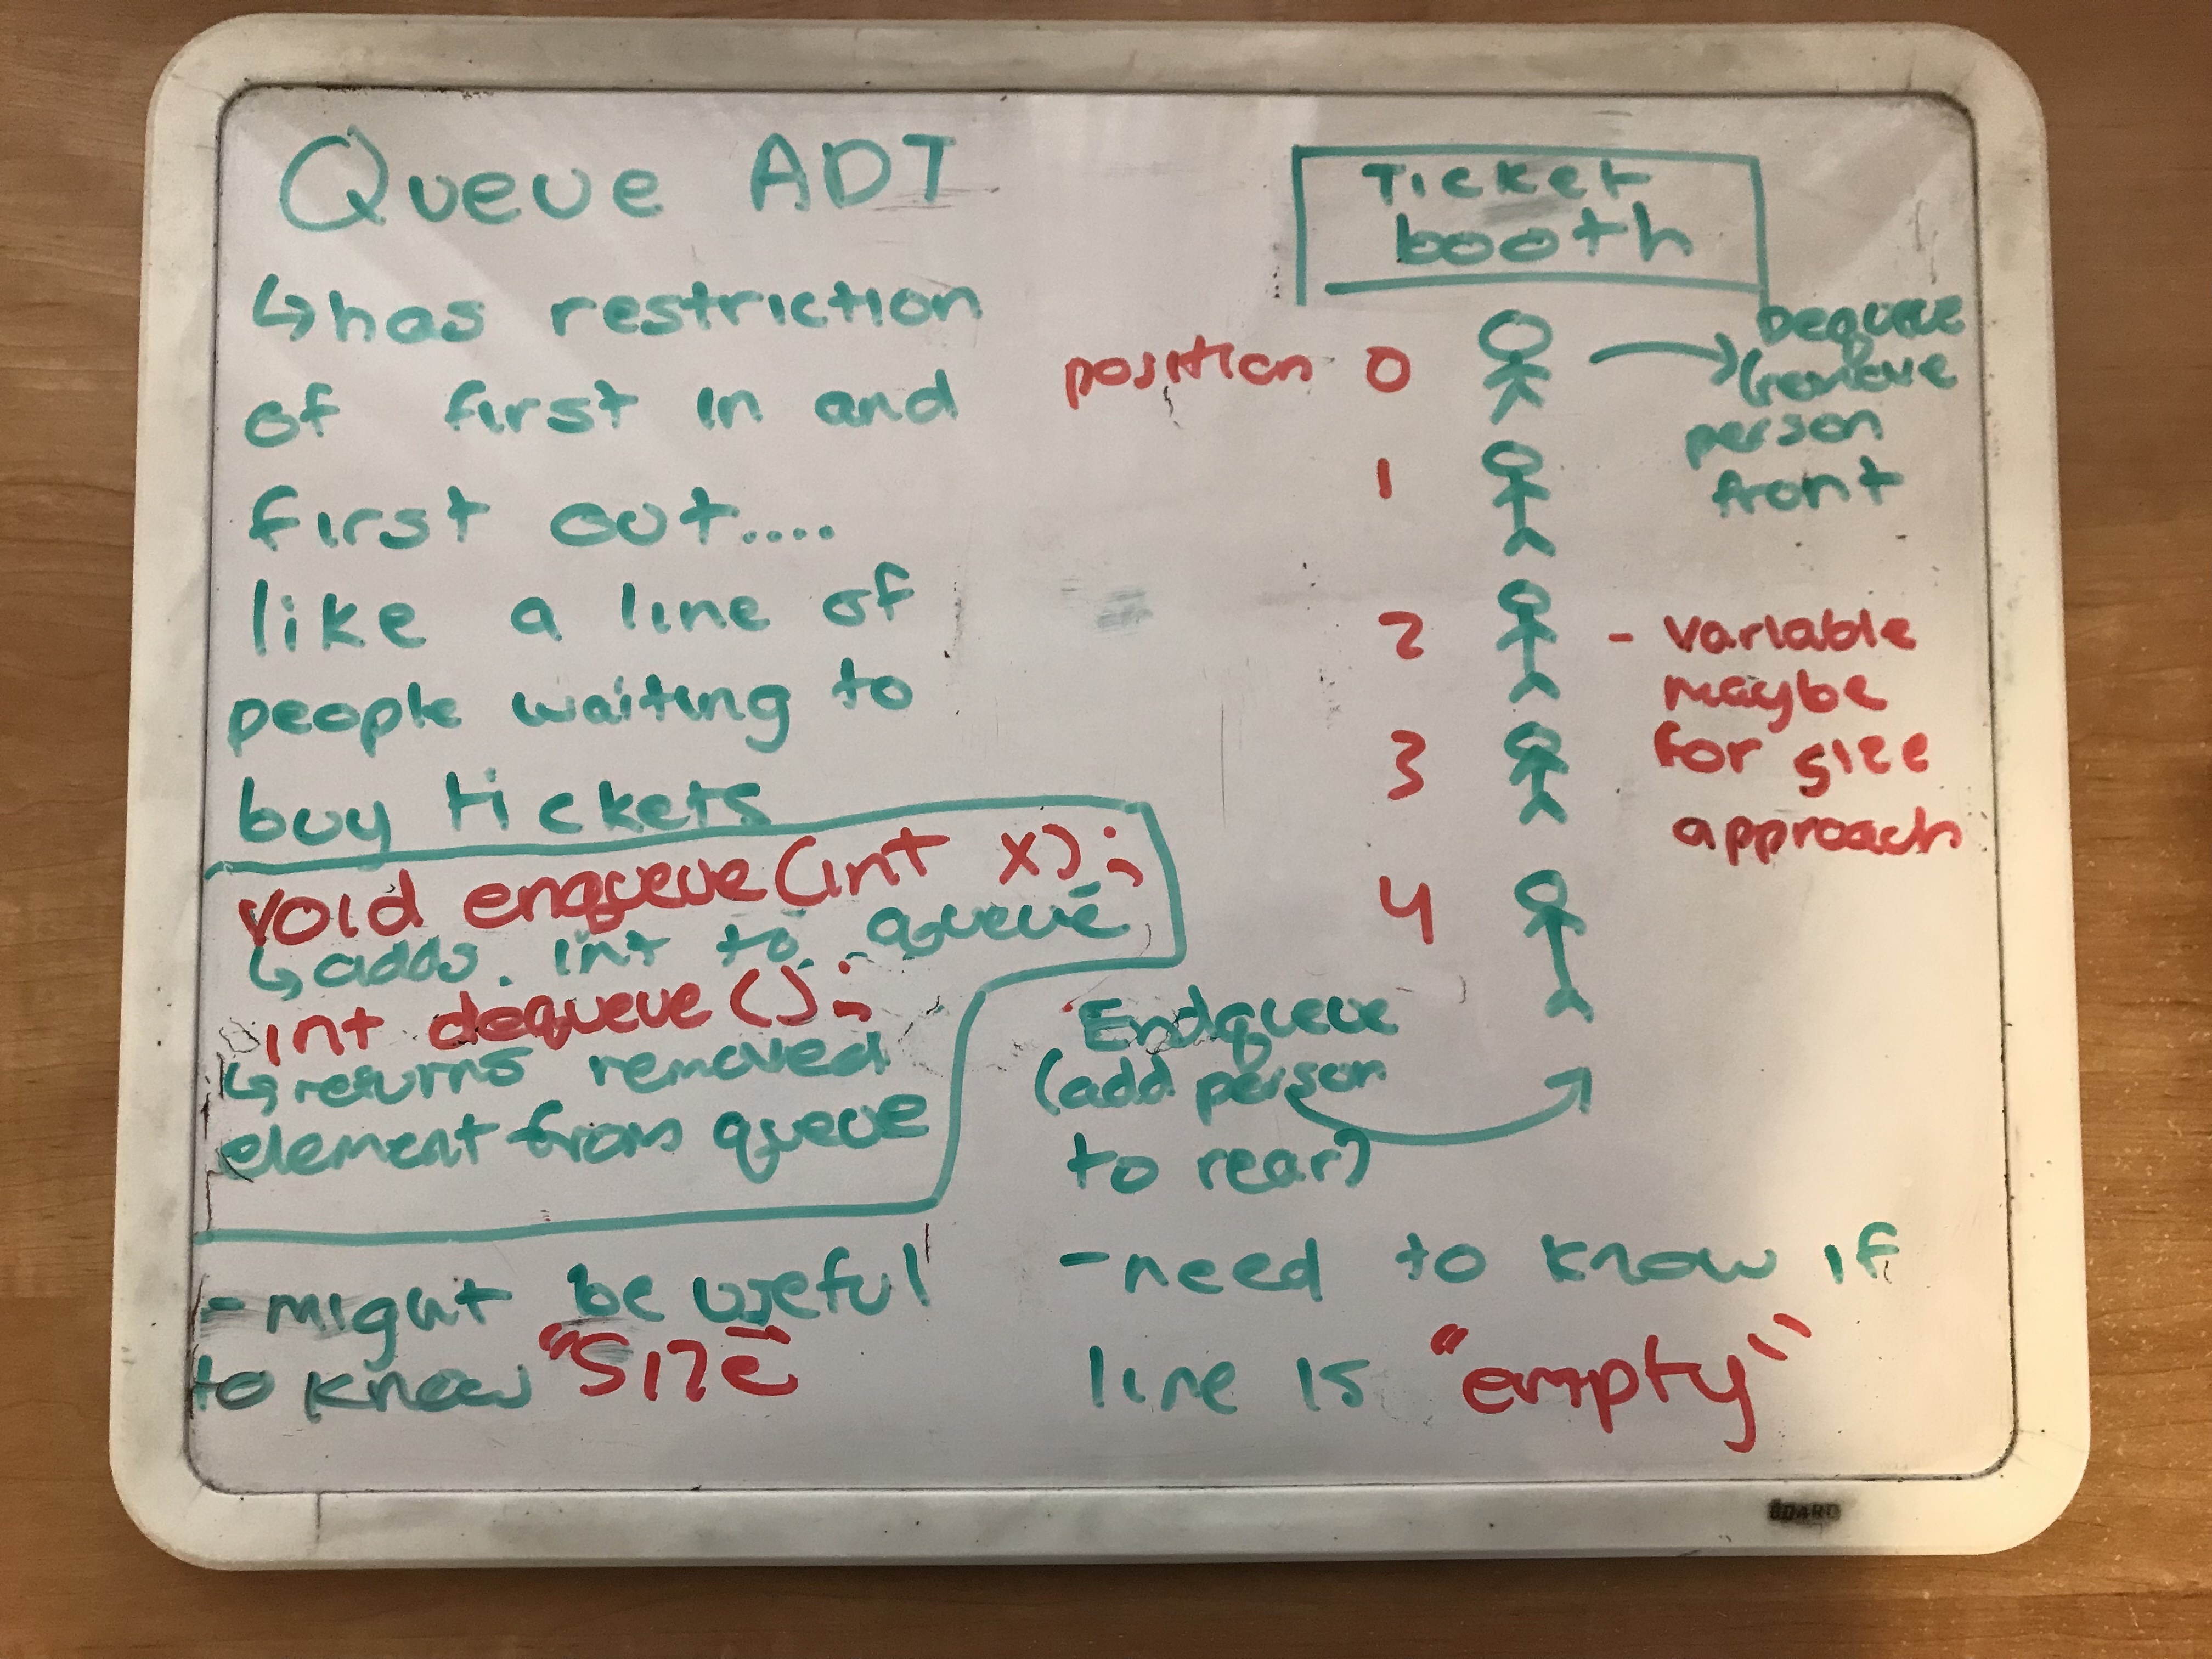 Queue ADT
↳has restriction
of first in and
first out....
like a line of
people waiting to
buy tickets
void enqueue(int x);
↳adds int to queue
int dequeue();
↳returns removed
element from queue
-might be useful
to know "size"
Ticket
booth
position 0
1
2
3
4
Dequeue
(remove
person
front
- variable
maybe
for size
approach
Endqueue
(add person
to rear)
-need to know if
line is "empty"
BOARD